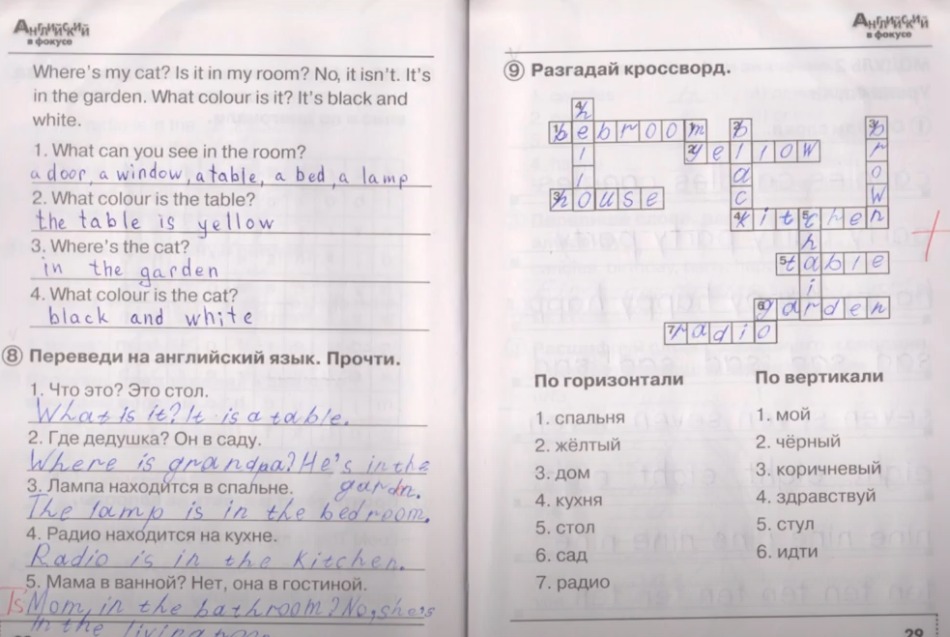 Английский
в фокусе
Where's my cat? Is it in my room? No, it isn't. It's
in the garden. What colour is it? It's black and
white.
1. What can you see in the room?
a door, a window, a table, a bed, a lamp
2. What colour is the table?
the table is yellow
3. Where's the cat?
in the garden
4. What colour is the cat?
black and white
8 Переведи на английский язык. Прочти.
1. Что это? Это стол.
What is it? It is a table.
2. Где дедушка? Он в саду.
Where is grandpa? He's in the
3. Лампа находится в спальне.
The lamp is in the bedroom.
4. Радио находится на кухне.
Radio is in the kitchen.
5. Мама в ванной? Нет, она в гостиной.
Is Mom, in the bathroom? No, she's
in the living
Английский
в фокусе
9 Разгадай кроссворд.
bebroom
yellow
house
kitchen
table
garden
radio
По горизонтали
1. спальня
2. жёлтый
3. дом
4. кухня
5. стол
6. сад
7. радио
По вертикали
1. мой
2. чёрный
3. коричневый
4. здравствуй
5. стул
6. идти
29